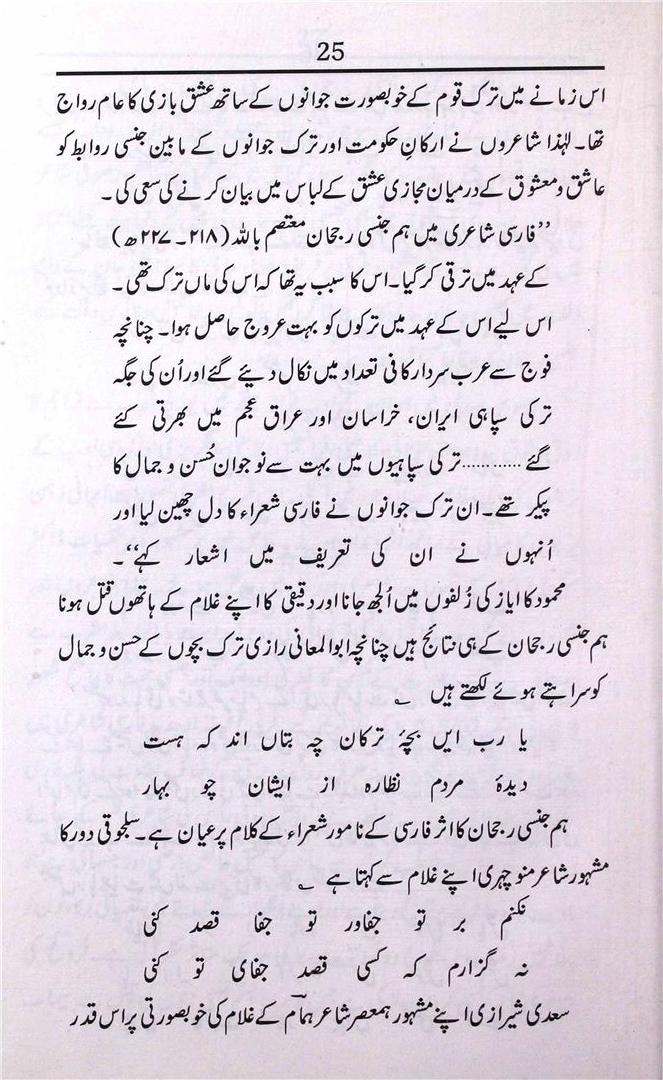 25
اس زمانے میں ترک قوم کے خوبصورت جوانوں کے ساتھ عشق بازی کا عام رواج
تھا۔ لہٰذا شاعروں نے ارکانِ حکومت اور ترک جوانوں کے مابین جنسی روابط کو
عاشق و معشوق کے درمیان مجازی عشق کے لباس میں بیان کرنے کی سعی کی۔
”فارسی شاعری میں ہم جنسی رجحان معتصم باللہ (۲۱۸۔ ۲۲۷ھ)
کے عہد میں ترقی کر گیا۔ اس کا سبب یہ تھا کہ اس کی ماں ترک تھی۔
اس لیے اس کے عہد میں ترکوں کو بہت عروج حاصل ہوا۔ چنانچہ
فوج سے عرب سردار کافی تعداد میں نکال دیئے گئے اور اُن کی جگہ
ترکی سپاہی ایران، خراسان اور عراق عجم میں بھرتی کئے
گئے ............ ترکی سپاہیوں میں بہت سے نوجوان حُسن و جمال کا
پیکر تھے۔ ان ترک جوانوں نے فارسی شعراء کا دل چھین لیا اور
اُنہوں نے ان کی تعریف میں اشعار کہے“۔
محمود کا ایاز کی زُلفوں میں اُلجھ جانا اور دقیقی کا اپنے غلام کے ہاتھوں قتل ہونا
ہم جنسی رجحان کے ہی نتائج ہیں چنانچہ ابو المعانی رازی ترک بچوں کے حسن و جمال
کو سراہتے ہوئے لکھتے ہیں ؎
یا رب ایں بچۂ ترکان چہ بتاں اند کہ ہست
دیدۂ مردم نظارہ از ایشان چو بہار
ہم جنسی رجحان کا اثر فارسی کے نامور شعراء کے کلام پر عیان ہے۔ سلجوقی دور کا
مشہور شاعر منوچہری اپنے غلام سے کہتا ہے ؎
نکنم بر تو جفاور تو جفا قصد کنی
نہ گزارم کہ کسی قصد جفای تو کنی
سعدی شیرازی اپنے مشہور ہمعصر شاعر ہمامؔ کے غلام کی خوبصورتی پر اس قدر